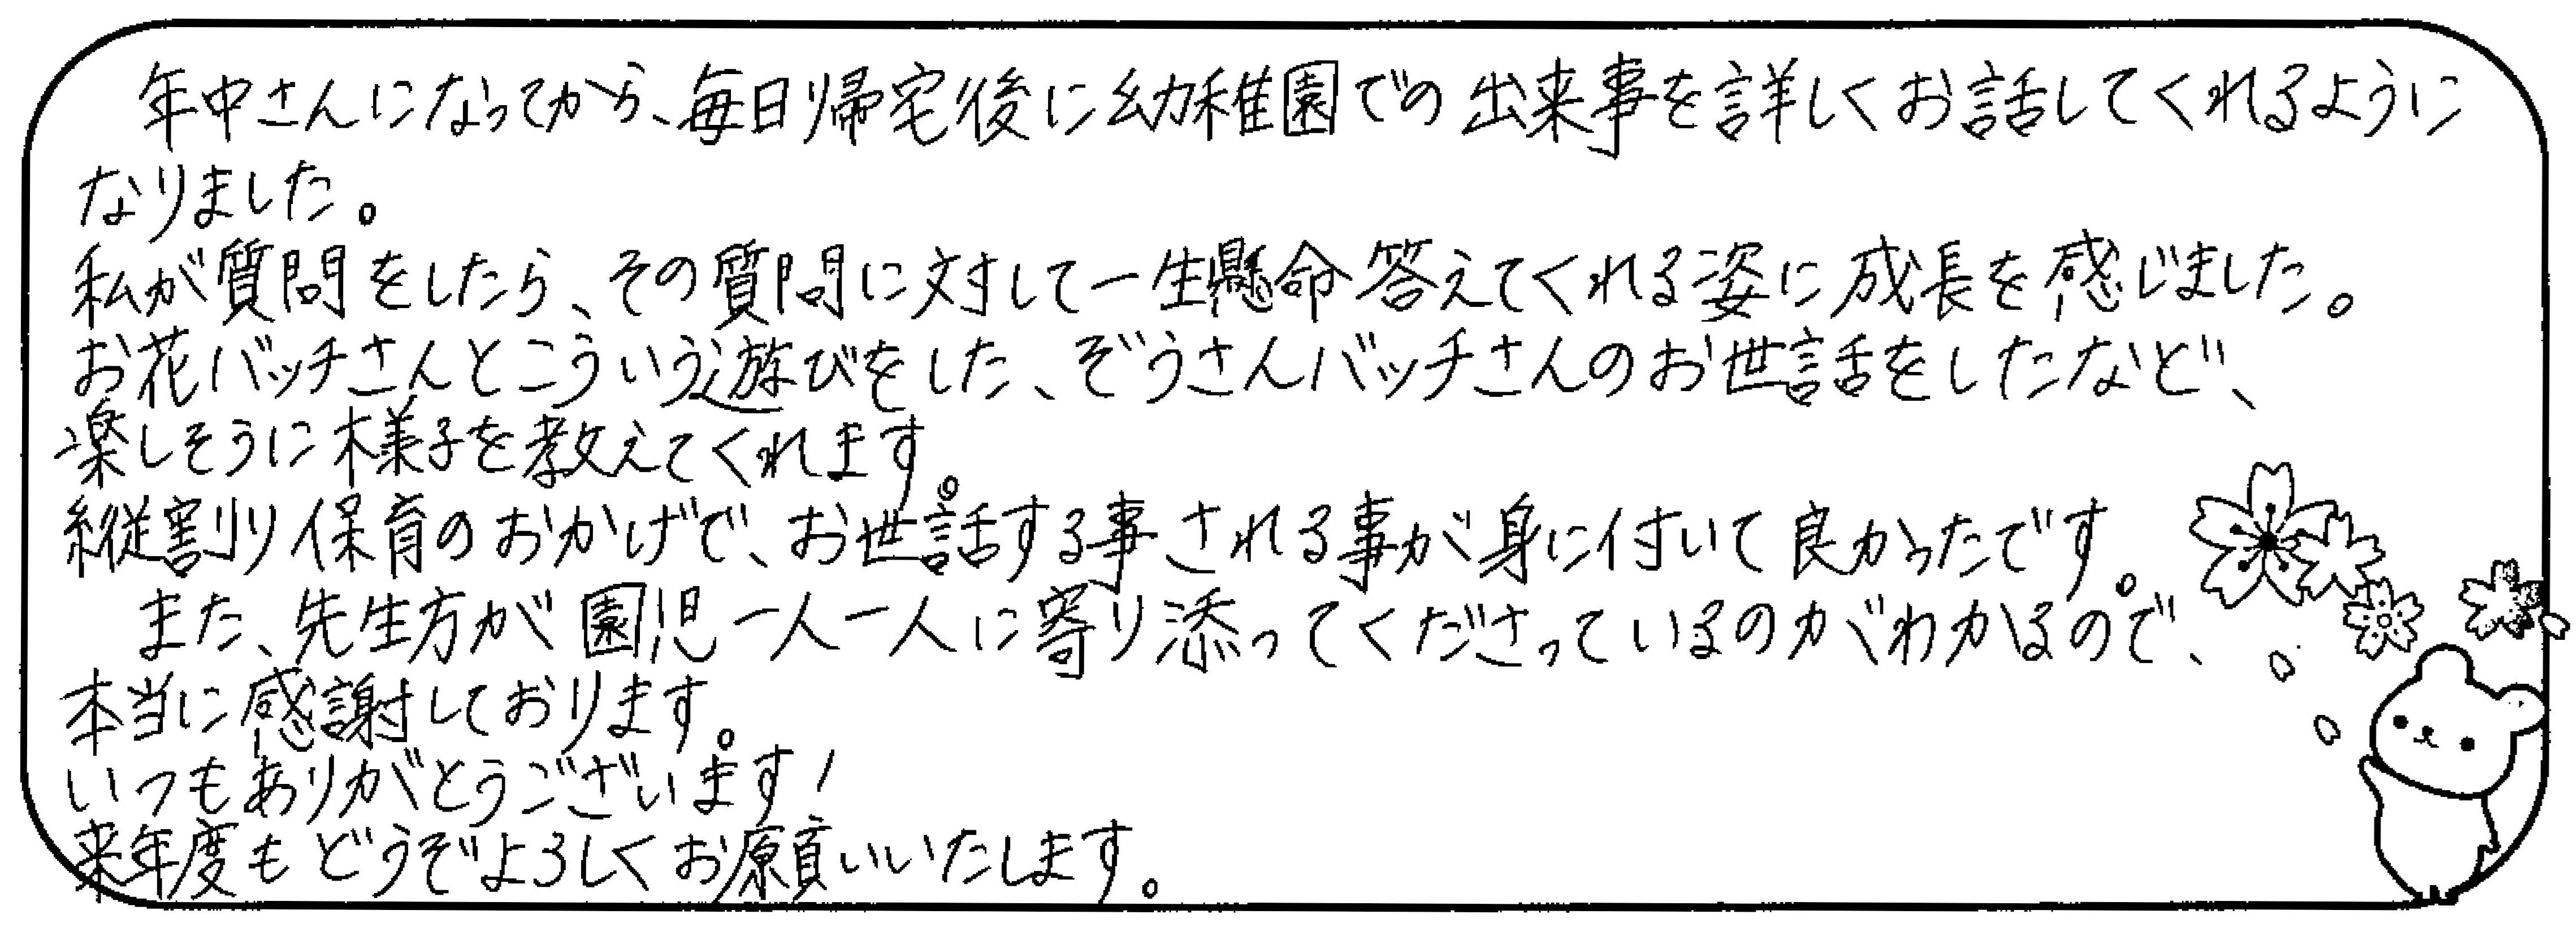 年中さんになってから、毎日帰宅後に幼稚園での出来事を詳しくお話してくれるように
なりました。
私が質問をしたら、その質問に対して一生懸命答えてくれる姿に成長を感じました。
お花バッチさんとこういう遊びをした、ぞうさんバッチさんのお世話をしたなど、
楽しそうに様子を教えてくれます。
縦割り保育のおかげで、お世話する事される事が身に付いて良かったです。
また、先生方が園児一人一人に寄り添ってくださっているのがわかるので、
本当に感謝しております。
いつもありがとうございます!
来年度もどうぞよろしくお願いいたします。